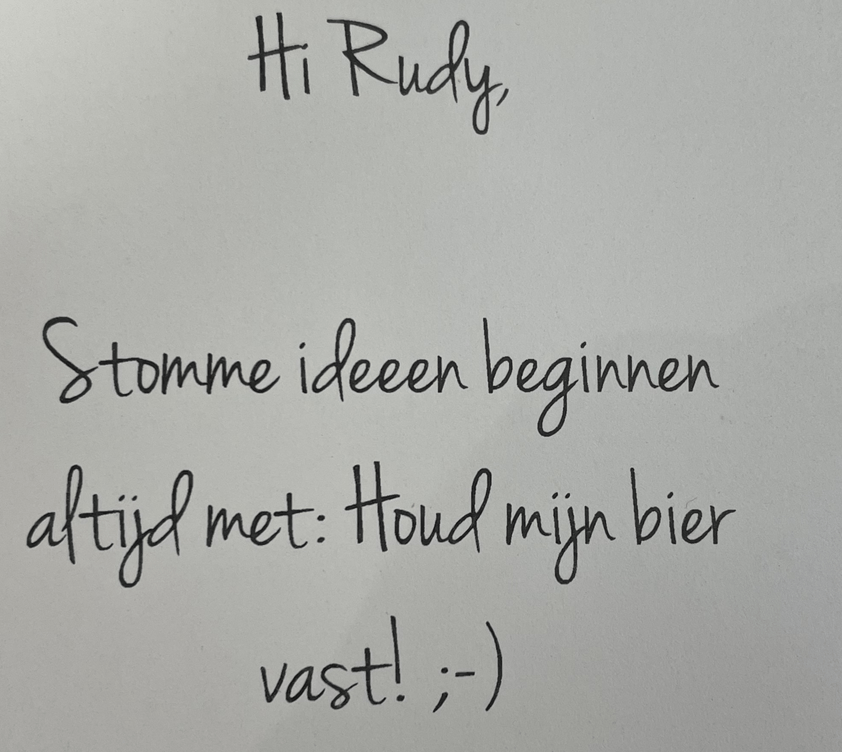 Hi Rudy,
Stomme ideeen beginnen
altijd met: Houd mijn bier
vast! ;-)